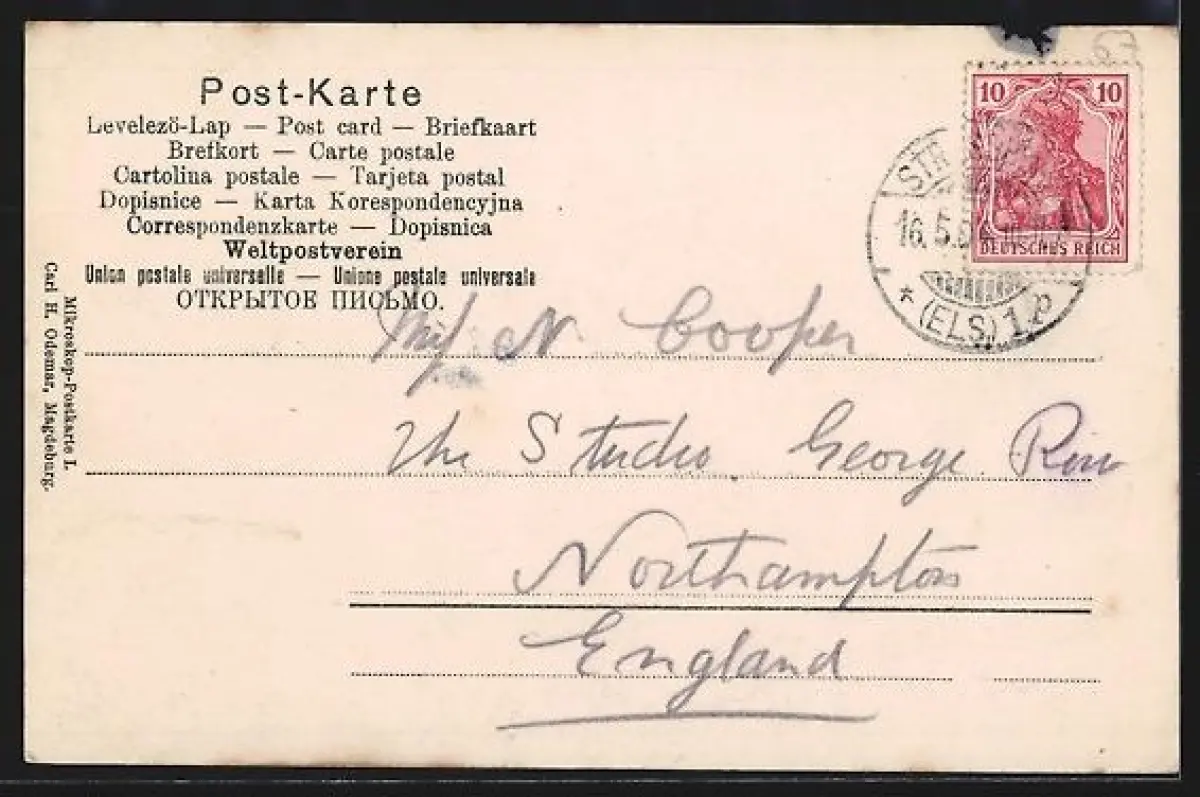 Post-Karte
Levelező-Lap — Post card — Briefkaart
Brefkort — Carte postale
Cartolina postale — Tarjeta postal
Dopisnice — Karta Korespondencyjna
Correspondenzkarte — Dopisnica
Weltpostverein
Union postale universelle — Unione postale universale
ОТКРЫТОЕ ПИСЬМО.
Mikroskop-Postkarte I.
Carl H. Odemar, Magdeburg.
10 10
DEUTSCHES REICH
STR
16.5.
* (ELS) 1.
67
Miss N Cooper
The Studio George Row
Northampton
England